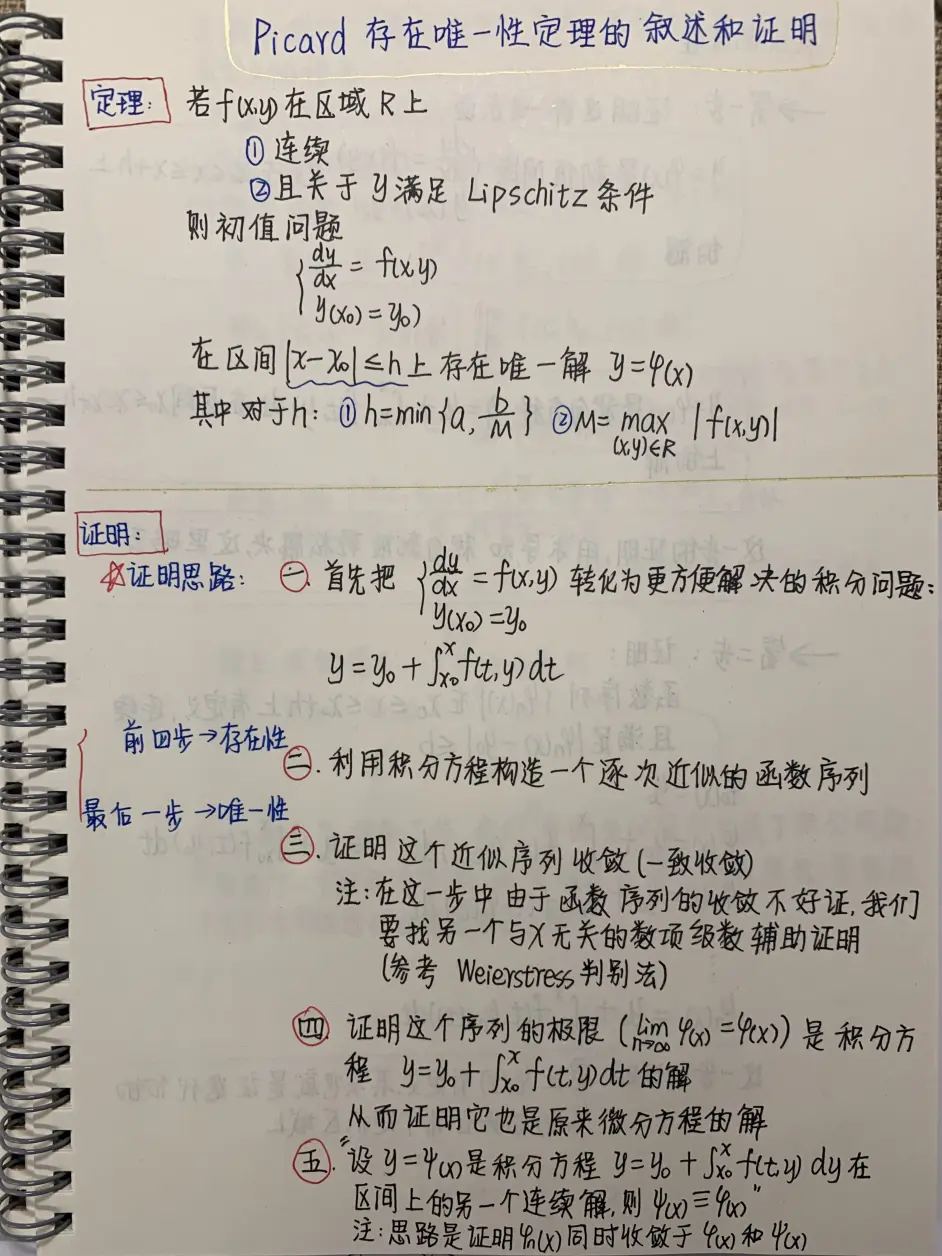 Picard 存在唯一性定理的叙述和证明
定理: 若 f(x,y) 在区域 R 上
① 连续
② 且关于 y 满足 Lipschitz 条件
则初值问题
{ dy/dx = f(x,y)
y(x₀) = y₀)
在区间 |x-x₀| ≤ h 上 存在唯一解 y=φ(x)
其中对于h: ① h=min{a, b/M} ② M= max |f(x,y)|
(x,y)∈R
证明:
☆证明思路: 一. 首先把 { dy/dx = f(x,y) 转化为更方便解决的积分问题:
y(x₀) = y₀
y = y₀ + ∫ₓ₀ˣ f(t,y) dt
前四步→存在性
二. 利用积分方程构造一个逐次近似的函数序列
最后一步→唯一性
三. 证明这个近似序列收敛 (一致收敛)
注: 在这一步中由于函数序列的收敛不好证, 我们
要找另一个与x无关的数项级数辅助证明
(参考 Weierstress 判别法)
四 证明这个序列的极限 (lim n→∞ φ(x) = φ(x)) 是积分方
程 y=y₀ + ∫ₓ₀ˣ f(t,y)dt 的解
从而证明它也是原来微分方程的解
五. "设 y=ψ(x) 是积分方程 y=y₀ + ∫ₓ₀ˣ f(t,y) dy 在
区间上的另一个连续解, 则 ψ(x) ≡ φ(x)"
注: 思路是证明 φₙ(x) 同时收敛于 φ(x) 和 ψ(x)